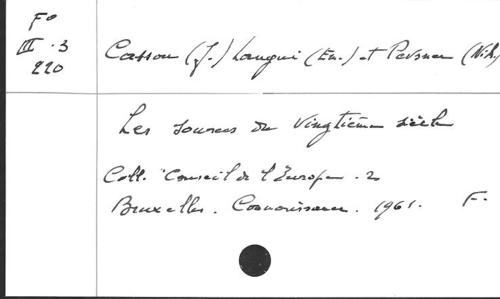 Fº
III . 3
220
Cassou (J.) Langui (Em.) et Pevsner (Nik.)
Les sources du Vingtième siècle
Coll. Conseil de l'Europe . 2
Bruxelles . Connaissance . 1961. F.